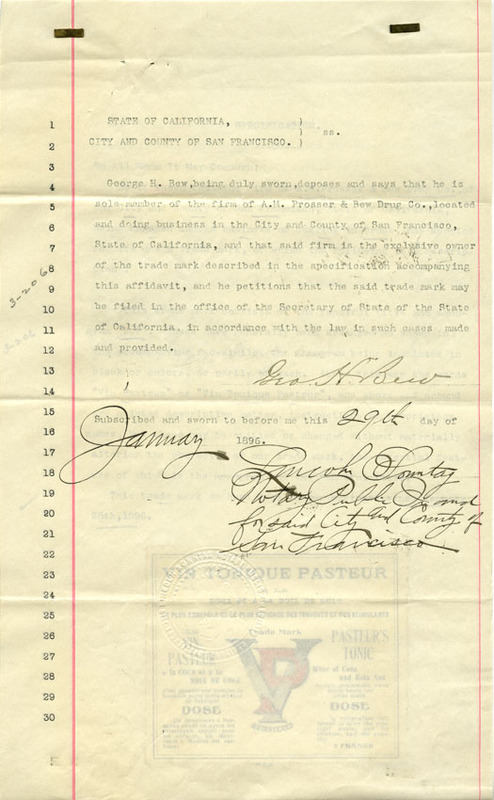 STATE OF CALIFORNIA, )
) ss.
CITY AND COUNTY OF SAN FRANCISCO. )
George H. Bew, being duly sworn, deposes and says that he is
sole member of the firm of A.M. Prosser & Bew Drug Co., located
and doing business in the City and County of San Francisco,
State of California, and that said firm is the exclusive owner
of the trade mark described in the specification accompanying
this affidavit, and he petitions that the said trade mark may
be filed in the office of the Secretary of State of the State
of California, in accordance with the law in such cases made
and provided.
Geo. H Bew
Subscribed and sworn to before me this 29th day of
January 1896.
Lincoln Sonntag
Notary Public In and
for said City and County of
San Francisco
1
2
3
4
5
6
7
8
9
10
11
12
13
14
15
16
17
18
19
20
21
22
23
24
25
26
27
28
29
30
3-206
VIN TONIQUE PASTEUR
Trade Mark
PASTEUR
PASTEUR'S
TONIC
Wine of Coca
and Kola Nut
DOSE
DOSE
VP